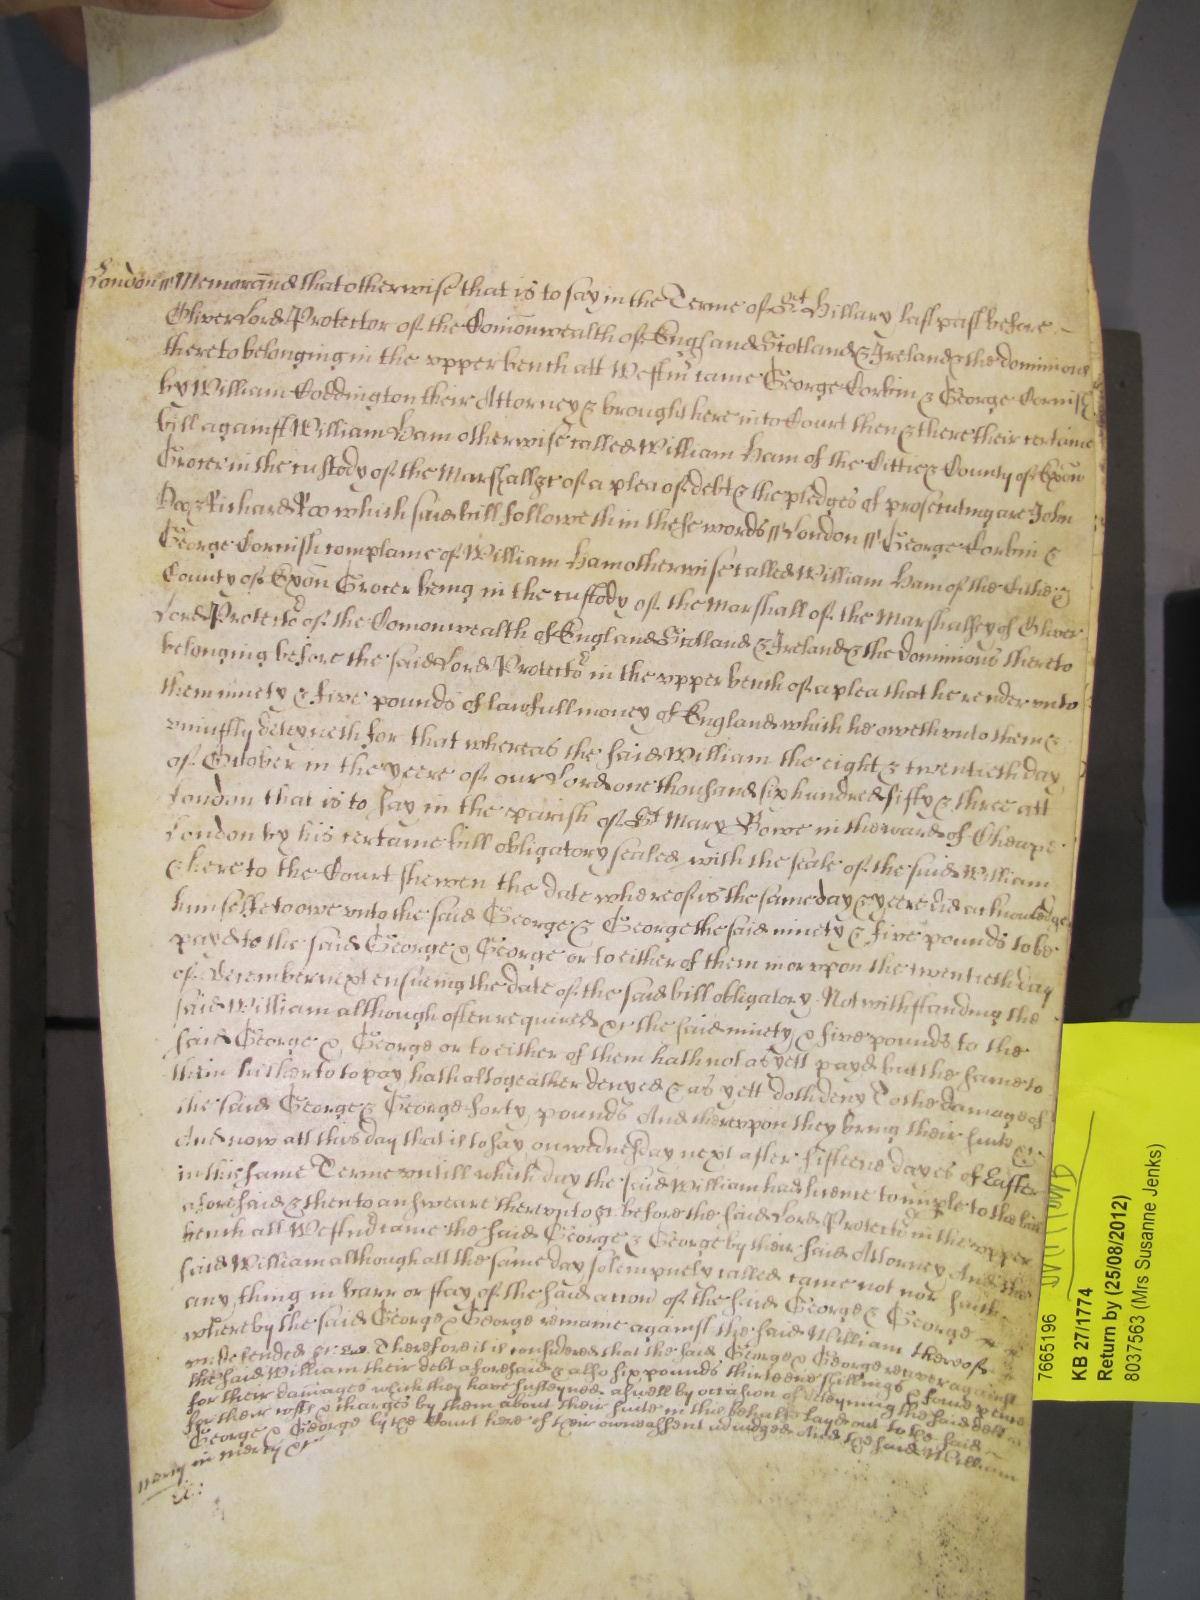 London // Memorand that otherwise that is to say in the Terme of St Hillary last past before
Oliver Lord Protector of the Comonwealth of England Scotland & Ireland & the dominions
thereto belonging in the upper bench att Westmr came George Corbin & George Cornish
by William Coddington their Attorney & brought here into Court then & there their certaine
bill against William Ham otherwise called William Ham of the Cittie & County of Exon
Grocer in the custody of the Marshall &c of a plea of debt & the pledges of prosecuting are John
Doo & Richard Roo which said bill followeth in these words // London // George Corbin &
George Cornish complaine of William Ham otherwise called William Ham of the Cittie &
County of Exon Grocer being in the custody of the Marshall of the Marshalsey of Oliver
Lord Protector of the Comonwealth of England Scotland & Ireland & the dominions thereto
belonging before the said Lord Protector in the upper bench of a plea that he render unto
them ninety & five pounds of lawfull money of England which he oweth unto them &
uniustly deteyneth for that whereas the said William the eight & twentieth day
of October in the yeere of our Lord one thousand six hundred fifty & three att
London that is to say in the parish of St Mary Bowe in the ward of Cheape
London by his certaine bill obligatory sealed with the seale of the said William
& here to the Court shewen the date whereof is the same day & yeere did acknowledge
himselfe to owe unto the said George & George the said ninety & five pounds to be
payd to the said George & George or to either of them in or upon the twentieth day
of december next ensuing the date of the said bill obligatory Notwithstanding the
said William although often required &c the said ninety & five pounds to the
said George & George or to either of them hath not as yett payd but the same to
them hitherto to pay hath altogeather denyed & as yett doth deny To the damage of
the said George & George forty pounds And thereupon they bring their suite &c
And now att this day that is to say on wednesday next after fifteene dayes of Easter
in this same Terme untill which day the said William had licence to imple to the bill
aforesaid & then to answeare thereunto &c before the said Lord Protector in the upper
bench att Westmr came the said George & George by their said Attorney And the
said William although att the same day solempnely called came not nor saith
any thing in barr or stay of the said accon of the said George & George
whereby the said George & George remaine against the said William thereof
undefended &c Therefore it is considered that the said George & George recover against
the said William their debt aforesaid & also six pounds thirteene shillings & foure pence
for their damages which they have susteyned aswell by occasion of deteyning the said debt as
for their costs & charges by them about their suite in this behalfe layd out to the said
George & George by the Court here of their owne assent adiudged And the said William
mercy in mercy &c
7665196
KB 27/1774
Return by (25/08/2012)
8037563 (Mrs Susanne Jenks)